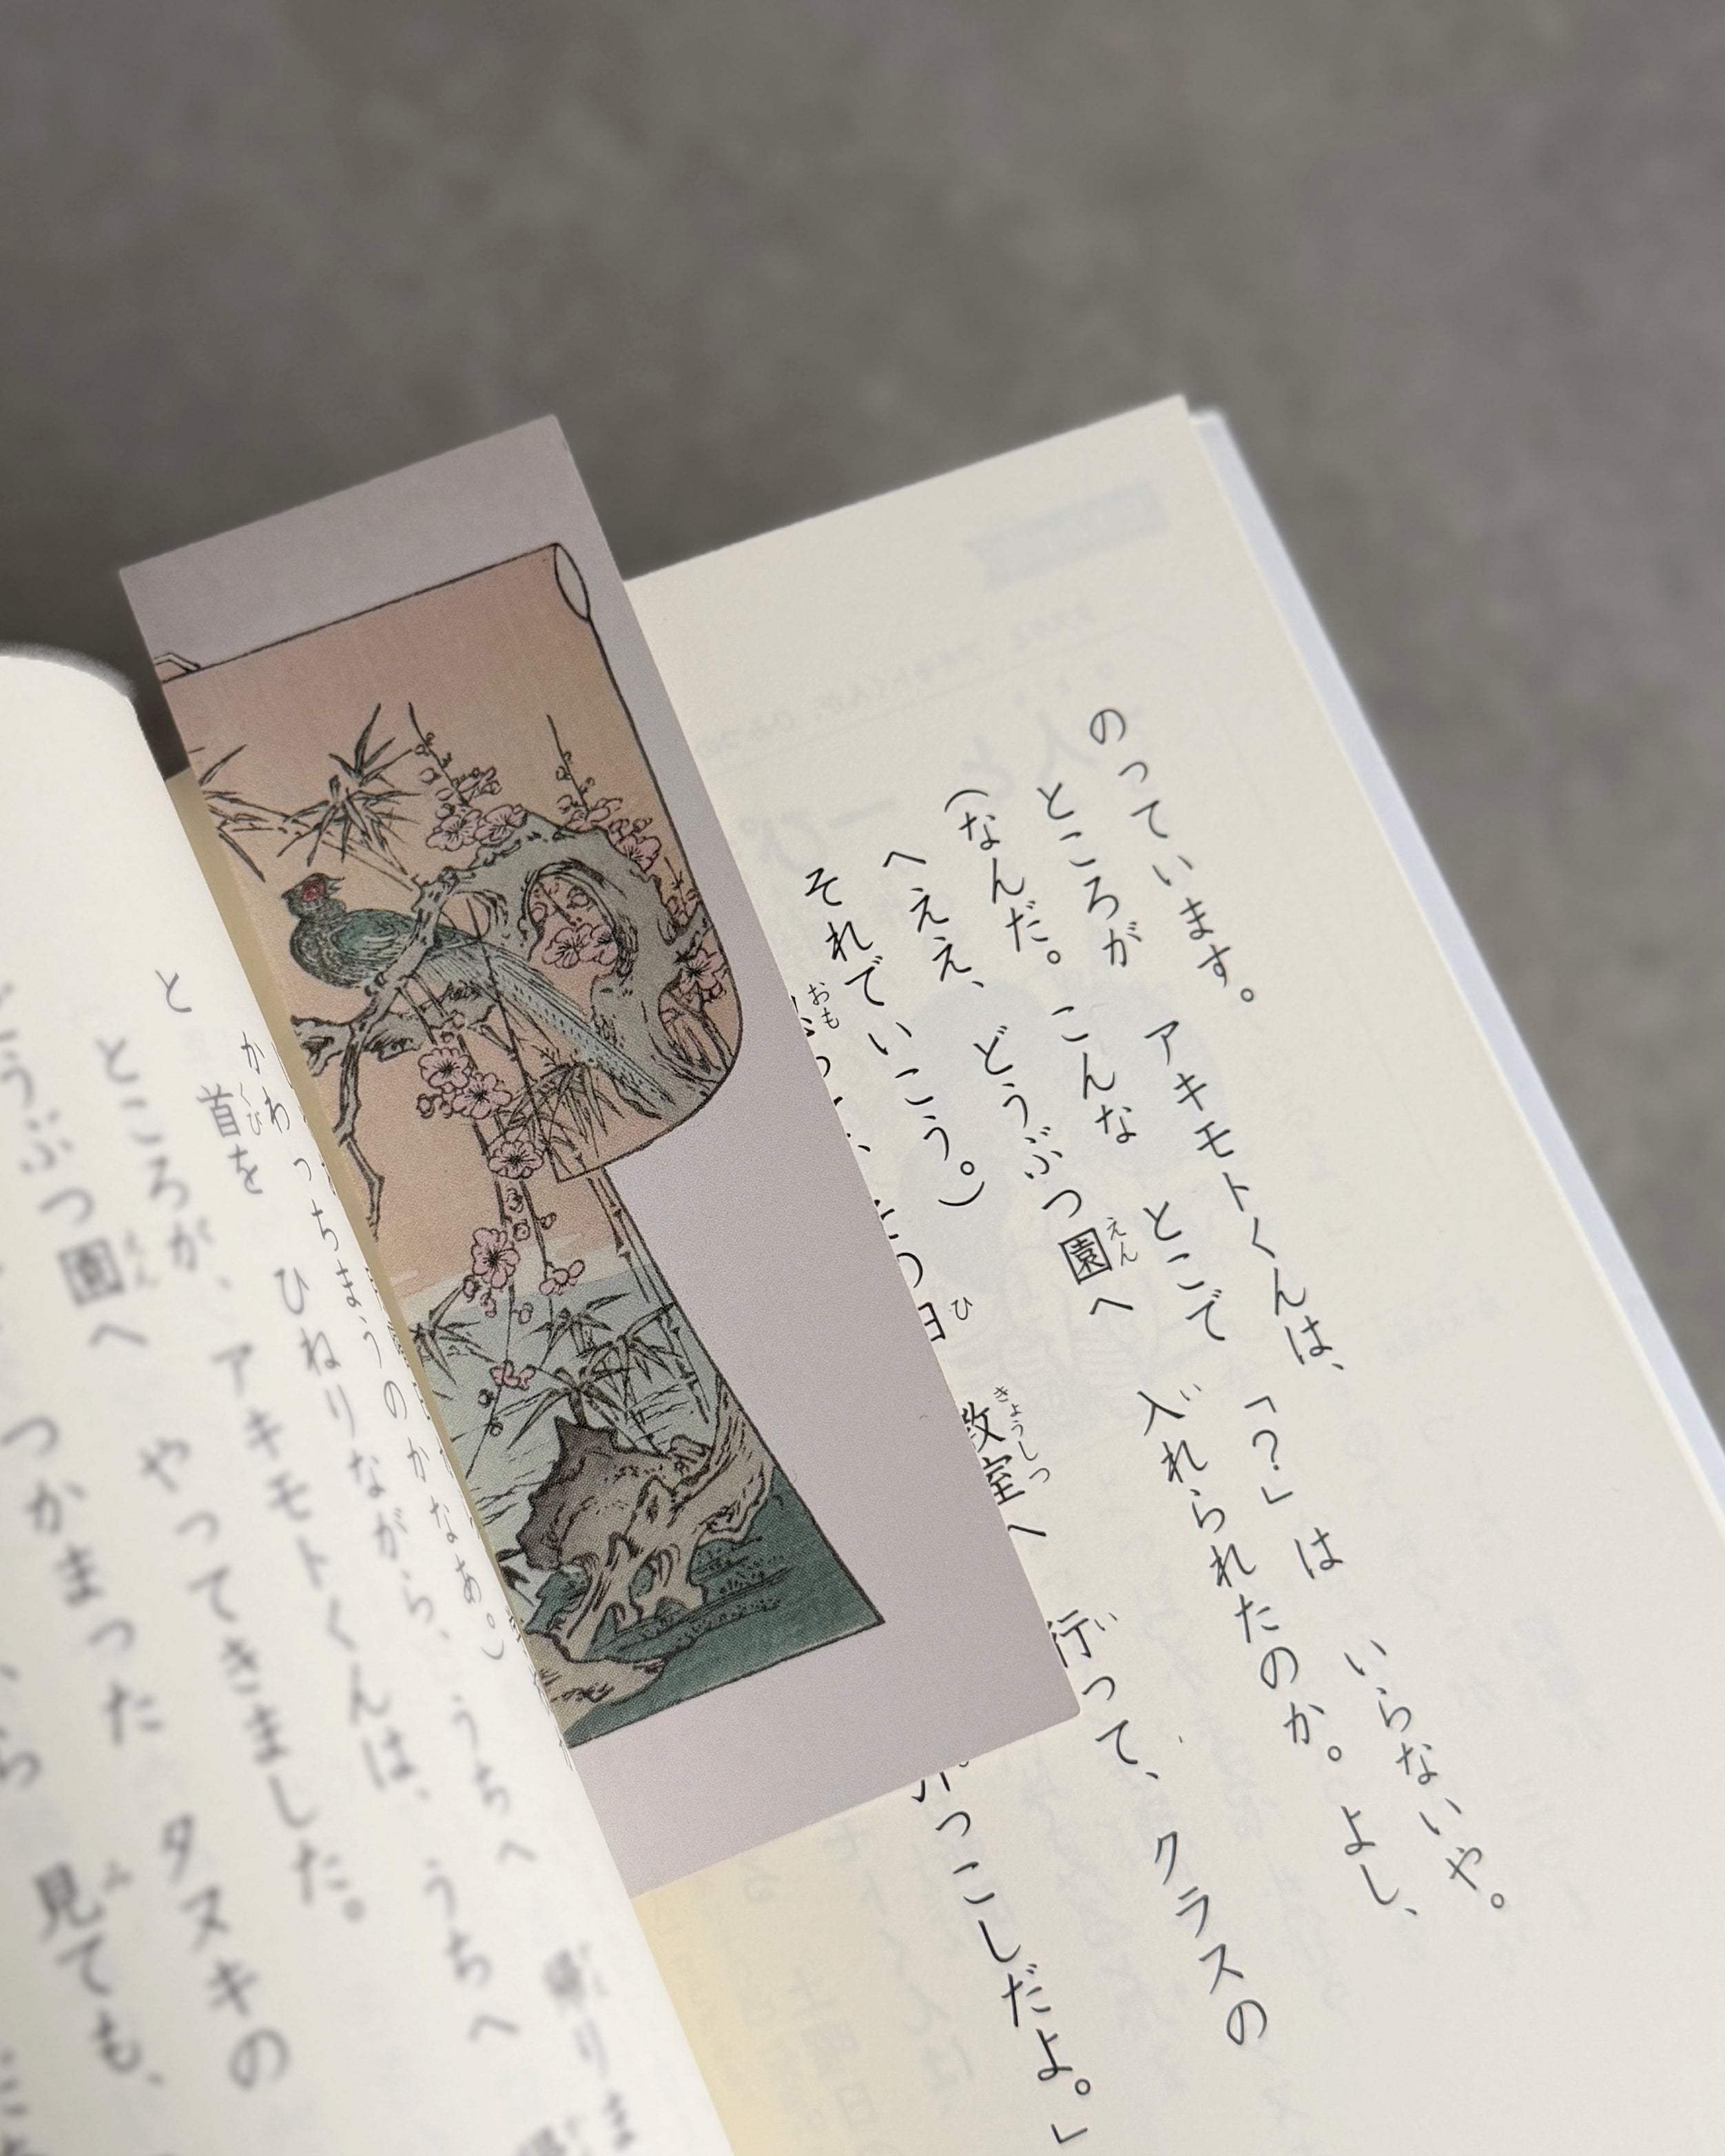 のっています。
ところが アキモトくんは、
(なんだ。 こんな とこで 「?」は いらないや。
へええ、 どうぶつ園へ 入れられたのか。 よし、
それでいこう。)
日 教室へ 行って、 クラスの
っこしだよ。」
かわっちまうのかなあ。)
と 首を ひねりながら、 うちへ 帰りま
ところが、 アキモトくんは、 うちへ
どうぶつ園へ やってきました。
つかまった タヌキの
見ても、